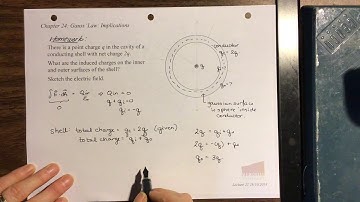 Chapter 24: Gauss' Law: Implications
Homework:
There is a point charge q in the cavity of a
conducting shell with net charge 2q.
What are the induced charges on the inner
and outer surfaces of the shell?
Sketch the electric field.
conductor
q
gaussian surface
is sphere inside
conductor.
⇒ Qin = 0
q + qi = 0
qi = -q
0
Shell total charge = qs = 2q (given)
total charge = qi + qo
2q = qi + qo
2q = -(q) + qo
qo = 3q